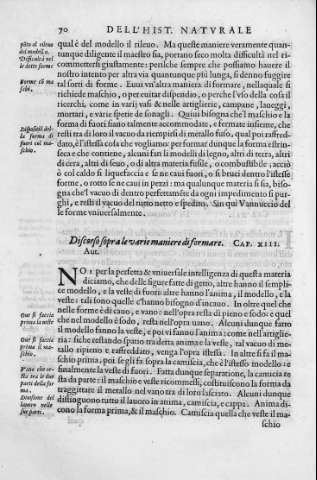 70 DELL'HIST. NATVRALE
qual è del modello il rileuo. Ma queste maniere veramente quan-
tunque diligente il maestro sia, portano seco molta difficultà nel ri-
commettersi giustamente: perische sempre che possiamo hauere il
nostro intento per altra via quantunque più lunga, si denno fuggire
tal sorti di forme. Euui vn'altra maniera di formare, nella quale si
richiede maschio, o per euitar dispendio, o perche l'vso della cosa il
ricerchi, come in varij vasi & nelle artiglierie, campane, laueggi,
mortari, e varie spetie de fonagli. Quiui bisogna che'l maschio e la
forma di fuori siano talmente accommodate, e fermate insieme, che
resti tra di loro il vacuo da riempirsi di metallo fuso, qual poi raffred-
dato, è l'istessa cosa che vogliamo: per formar dunque la forma estrin-
seca e che contiene, alcuni fan li modelli di legno, altri di terra, altri di
cera, altri di seuo, o di altra materia fusile, o combustibile; acciò
è col caldo si liquefaccia e se ne caui fuora, o si bruci dentro l'istessa
forma, o rotto se ne caui in pezzi: ma qualunque materia si sia, biso-
gna che'l vacuo di dentro perfettamente da ogni impedimento si pur-
ghi, e resti il vacuo del tutto netto e spedito. Sin qui Vannuccio del-
le forme vniuersalmente.
pito al rileuo
del modello.
Difficultà nel
le dette forme
Forme cō ma
schi.
Dispositiō del-
la forma di
fuori col ma-
schio.
Discorso sopra le varie maniere di formare. CAP. XIII.
Aut.
NOi per la perfetta & vniuersale intelligenza di questa materia
diciamo, che delle figure fatte di getto, altre hanno il sempli-
ce modello, e la veste di fuori: altre hanno l'anima, il modello, e la
veste: i di sono quelle c'hanno bisogno d'incauo. In oltre quel che
nelle forme è di cauo, e vano: nell'opra resta di pieno e sodo: e quel
che nel modello è sodo, resta nell'opra vano. Alcuni dunque fatto
il modello fanno la veste, e poi vi fanno l'anima: come nell'artiglie-
ria: siche restando spatio tra detta anima e la veste, tal vacuo di me-
tallo ripieno e raffreddato, venga l'opra istessa. In altre si fa il ma-
schio prima, poi se gli fa sopra la camiscia, che è l'istesso modello: e
finalmente la veste di fuori. Fatta dunque separatione, la camicia re
sta da parte: il maschio e veste ricommessi, costituiscono la forma da
traggittare il metallo nel vano tra di loro lasciato. Alcuni dunque
distinguono tutto il lauoro in anima, camiscia, e cappa. Anima di-
cono la forma prima, & il maschio. Camiscia quella che veste il ma-
schio
Oue si faccia
prima la veste
Oue si faccia
prima il ma-
schio.
Vano che re-
sta tra le due
parti della for
ma.
Diuisione del
lauoro nelle
sue parti.